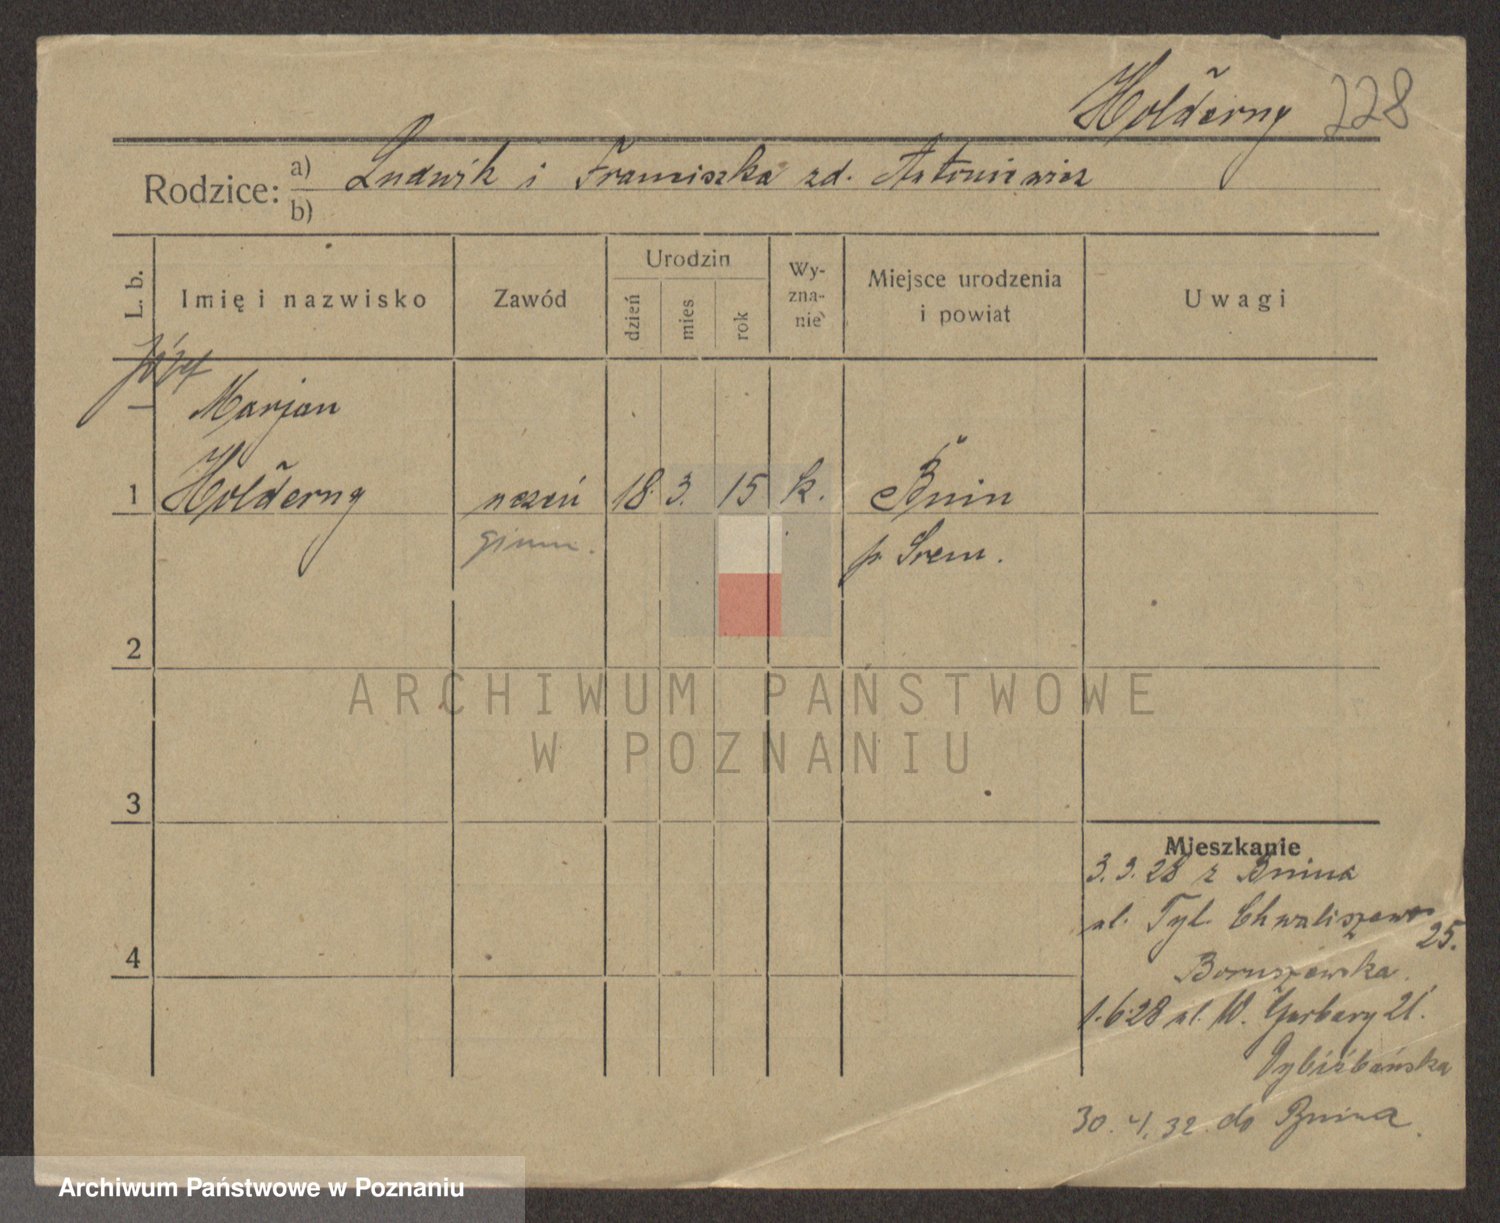 Holderny 228
Rodzice: a) Ludwik i Franciszka zd. Antoniewicz
b)
L. b.
Imię i nazwisko
Zawód
Urodzin
dzień
mies
rok
Wy-
zna-
nie
Miejsce urodzenia
i powiat
Uwagi
Józef
Marjan
1 Holderny uczeń 18. 3. 15 k. Bnin
gimn. p. Śrem.
2
ARCHIWUM PAŃSTWOWE
W POZNANIU
3
Mieszkanie
3. 3. 28 z Bnina
ul. Tyl. Chwaliszewo
25.
Boruszewska
4
1.6.28 ul. W. Garbary 21.
30. 4. 32. do Bnina.
Archiwum Państwowe w Poznaniu